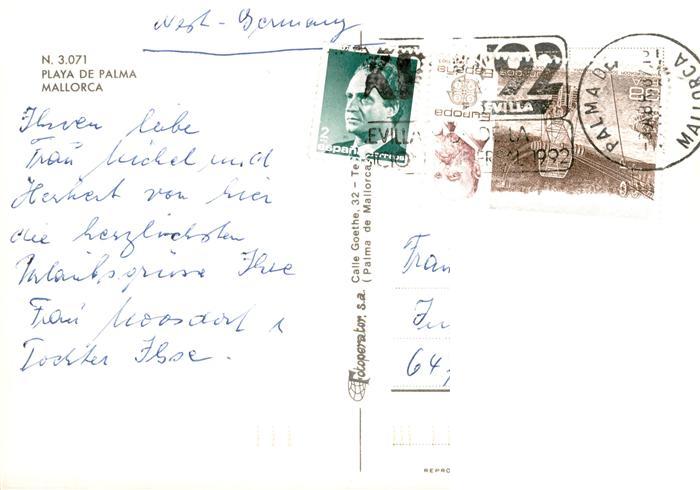 West-Germany
N. 3.071
PLAYA DE PALMA
MALLORCA
Ihnen liebe
Frau Michel und
Herbert von hier
die herzlichsten
Urlaubsgrüsse Ihre
Frau Moosdorf u
Tochter Ilse.
2
españa
Europa
España
92
SEVILLA
1992
PALMA DE MALLORCA
Fotoperator, s.a. Calle Goethe, 32 - Te
( Palma de Mallorca
Frau
64
REPRO